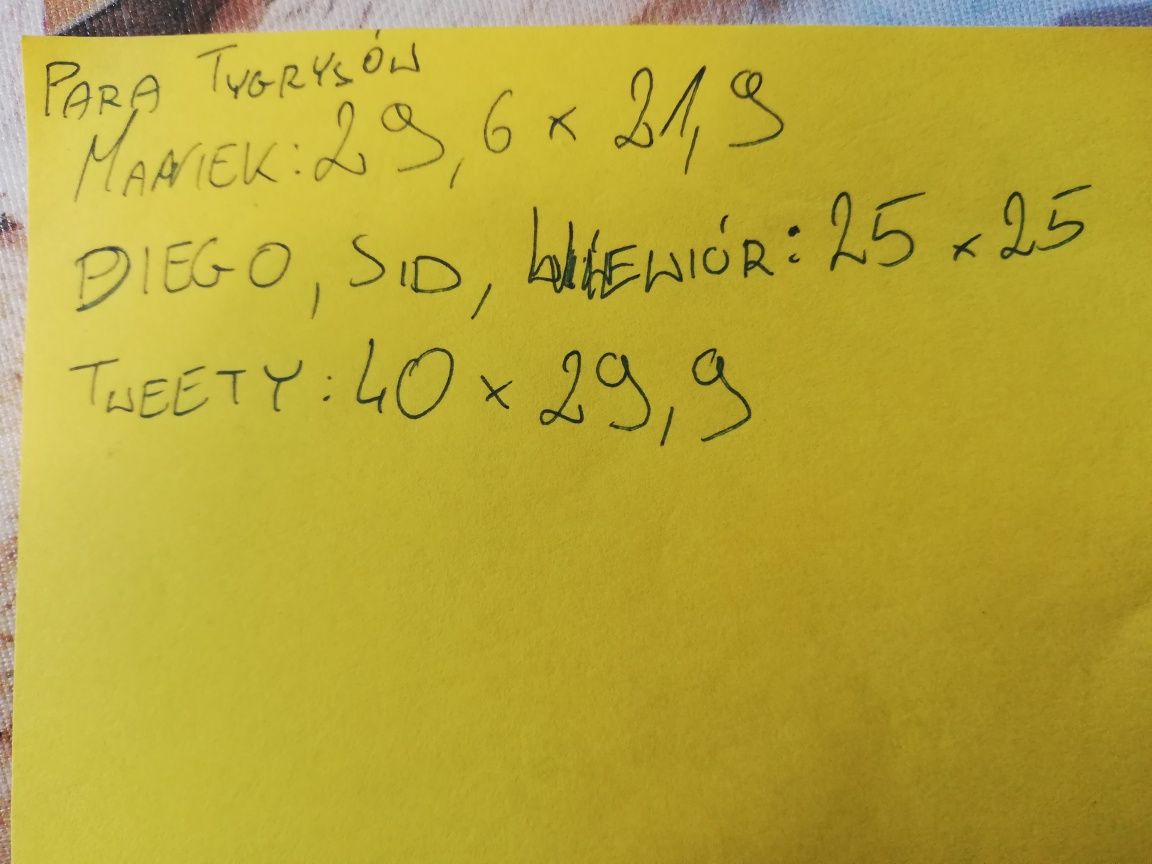 PARA TYGRYSÓW
MANIEK: 29,6 x 21,9
DIEGO, SID, WIEWIÓR: 25 x 25
TWEETY: 40 x 29,9